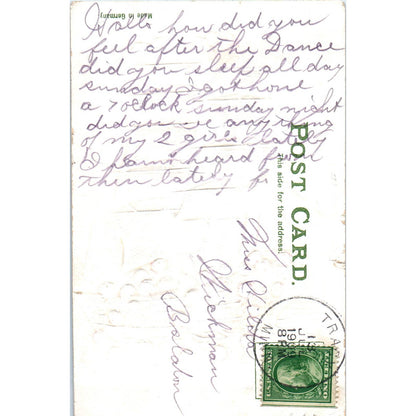 Hallo how did you
feel after the Dance
did you sleep all day
sunday I got home
a 7 oclock sunday night
did you any thing
of my 2 girls lately
I haint heard from
them lately
Made in Germany
POST CARD.
This side for the address.
Miss
Baldon
TRA
15
JUL
8 PM